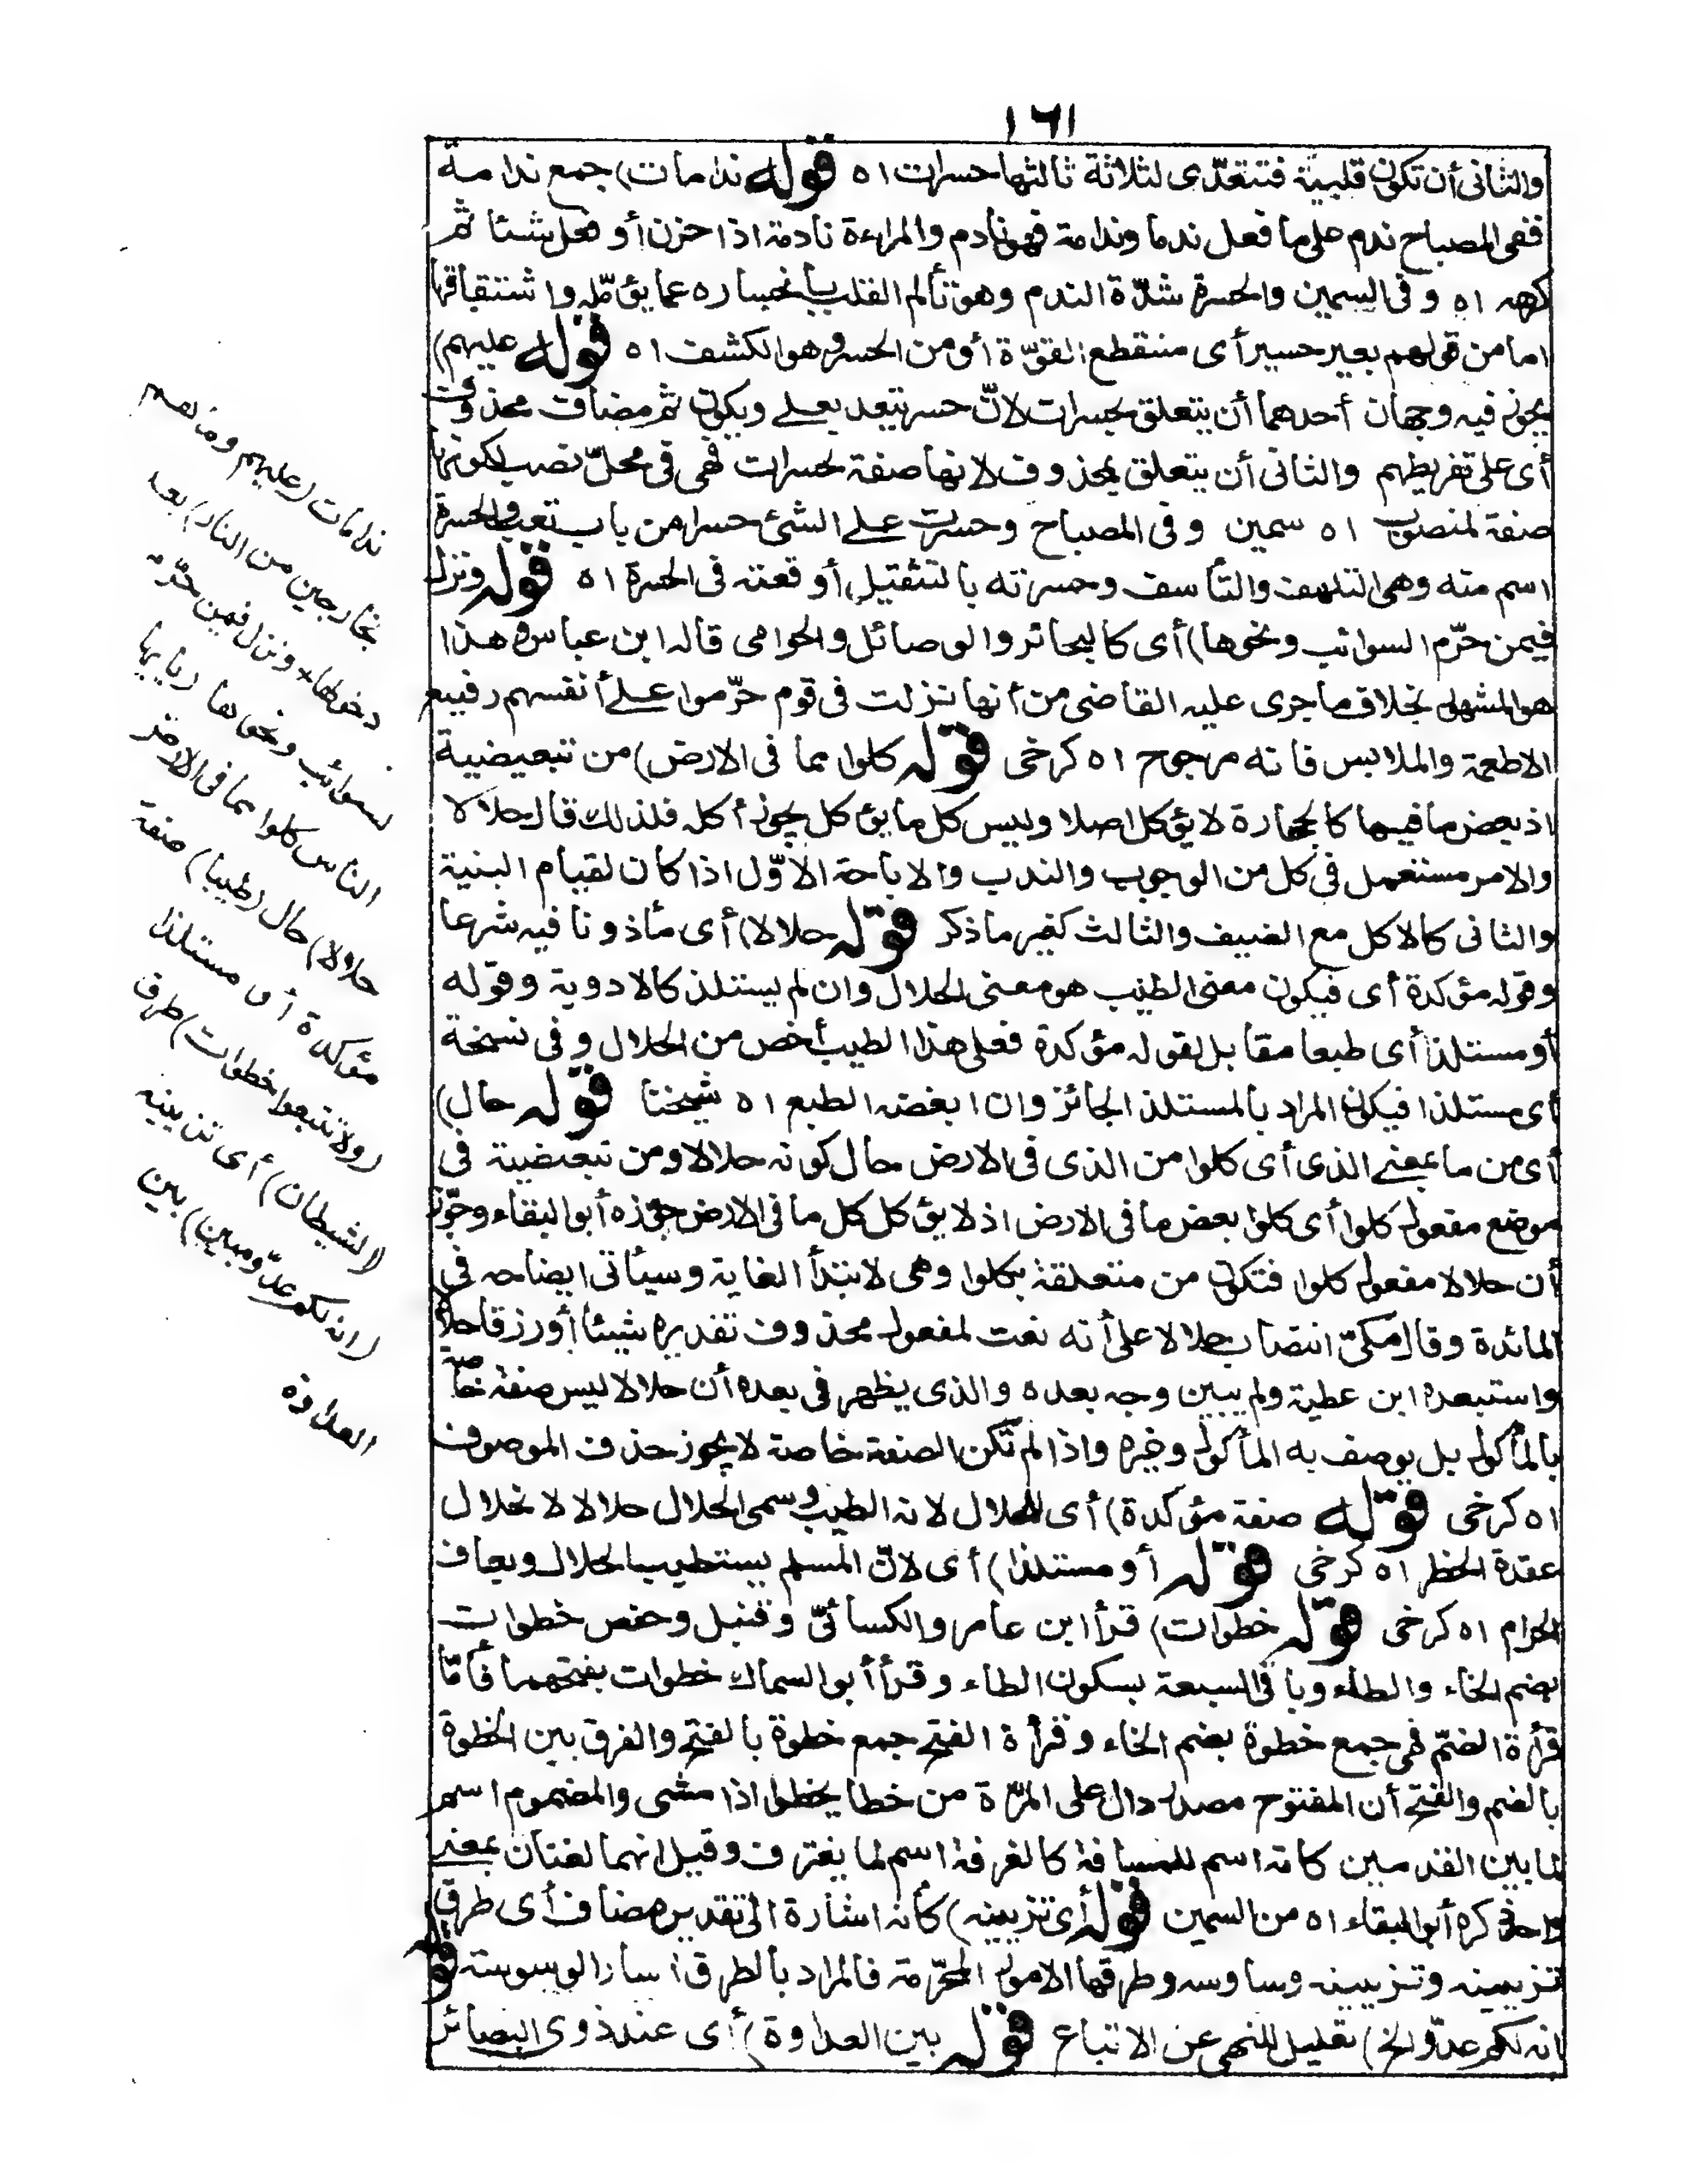 ١٦١
والثانى أن تكون قلبية فتتعدّى لثلاثة ثالثها حسرات اه قوله ندامات) جمع ندامة
ففى المصباح ندم على ما فعل ندما وندامة فهو نادم والمراءة نادمة اذا حزن أو فعل شيئا ثم
كرهه اه وفى السمين والحسرة شدّة الندم وهو تألم القلب بانحساره عما يؤمّله واشتقاقها
اما من قولهم بعير حسير أى منقطع القوّة أو من الحسر وهو الكشف اه قوله عليهم)
يجوز فيه وجهان أحدهما أن يتعلق بحسرات لانّ حسر يتعد بعلى ويكون ثم مضاف محذوف
أى على تفريطهم والثانى أن يتعلق بمحذوف لانها صفة لحسرات فهى فى محلّ نصب لكونها
صفة لمنصوب اه سمين وفى المصباح وحسرت على الشئ حسرا من باب تعب والحسرة
اسم منه وهى التلهف والتأسف وحسرته بالتثقيل أوقعته فى الحسرة اه قوله ونزل
فيمن حرّم السوائب ونحوها) أى كالبحائر والوصائل والحوامى قاله ابن عباس وهذا
هو المشهور بخلاف ما جرى عليه القاضى من أنها نزلت فى قوم حرّموا على أنفسهم رفيع
الاطعمة والملابس فانه مرجوح اه كرخى قوله كلوا مما فى الارض) من تبعيضية
اذ بعض ما فيها كالحجارة لا يؤكل اصلا وليس كل ما يؤكل يجوز أكله فلذلك قال حلالا
والامر مستعمل فى كل من الوجوب والندب والاباحة الاوّل اذا كان لقيام البنية
والثانى كالاكل مع الضيف والثالث كغير ما ذكر قوله حلالا) أى مأذونا فيه شرعا
وقوله مؤكدة أى فيكون معنى الطيب هو معنى الحلال وان لم يستلذ كالادوية وقوله
أو مستلذا أى طبعا مقابل لقوله مؤكدة فعلى هذا الطيب أخص من الحلال وفى نسخة
أى مستلذا فيكون المراد بالمستلذ الجائز وان ابغضه الطبع اه شيخنا قوله حال)
أى من ما بمعنى الذى أى كلوا من الذى فى الارض حال كونه حلالا ومن تبعيضية فى
موضع مفعول كلوا أى كلوا بعض ما فى الارض اذ لا يؤكل كل ما فى الارض جوّزه أبو البقاء وجوّز
أن حلالا مفعول كلوا فتكون من متعلقة بكلوا وهى لابتدأ الغاية وسيأتى ايضاحه فى
المائدة وقال مكىّ انتصاب حلالا على أنه نعت لمفعول محذوف تقديره شيئا أو رزقا حلالا
واستبعده ابن عطية ولم يبين وجه بعده والذى يظهر فى بعده أن حلالا ليس صفة خاصة
بالمأكول بل يوصف به المأكول وغيره واذا لم تكن الصفة خاصة لا يجوز حذف الموصوف
اه كرخى قوله صفة مؤكدة) أى للحلال لانه الطيب وسمى الحلال حلالا لانحلال
عقدة الحظر اه كرخى قوله أو مستلذا) أى لانّ المسلم يستطيب الحلال ويعاف
الحرام اه كرخى قوله خطوات) قرأ ابن عامر والكسائىّ وقنبل وحفص خطوات
بضم الخاء والطاء وباقى السبعة بسكون الطاء وقرأ أبو السماك خطوات بفتحهما فأمّا
قرأة الضمّ فهى جمع خطوة بضم الخاء وقرأة الفتح جمع خطوة بالفتح والفرق بين الخطوة
بالضم والفتح أن المفتوح مصدر دال على المرّة من خطا يخطو اذا مشى والمضموم اسم
لما بين القدمين كانه اسم للمسافة كالغرفة اسم لما يغترف وقيل انهما لغتان بمعنى
واحد ذكره أبو البقاء اه من السمين قوله أى تزيينه) كأنه اشارة الى تقدير مضاف أى طرق
تزيينه وتزيينه وساوسه وطرقها الامور المحرّمة فالمراد بالطرق آسار الوسوسة قوله
انه لكم عدوّ الخ) تعليل للنهى عن الاتباع قوله بين العداوة) أى عند ذوى البصائر
ندامات (عليهم وما هم
بخارجين من النار) بعد
دخولها * ونزل فيمن حرّم
السوائب ونحوها (يايها
الناس كلوا مما فى الارض
حلالا) حال (طيبا) صفة
مؤكدة أى مستلذا
(ولا تتبعوا خطوات) طرق
(الشيطان) أى تزيينه
(انه لكم عدوّ مبين) بين
العداوة